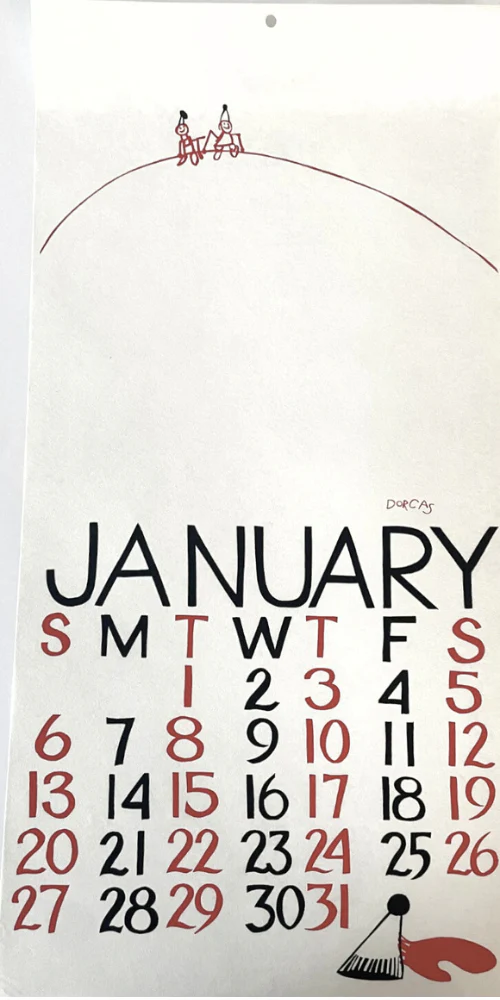 DORCAS
JANUARY
S M T W T F S
1 2 3 4 5
6 7 8 9 10 11 12
13 14 15 16 17 18 19
20 21 22 23 24 25 26
27 28 29 30 31